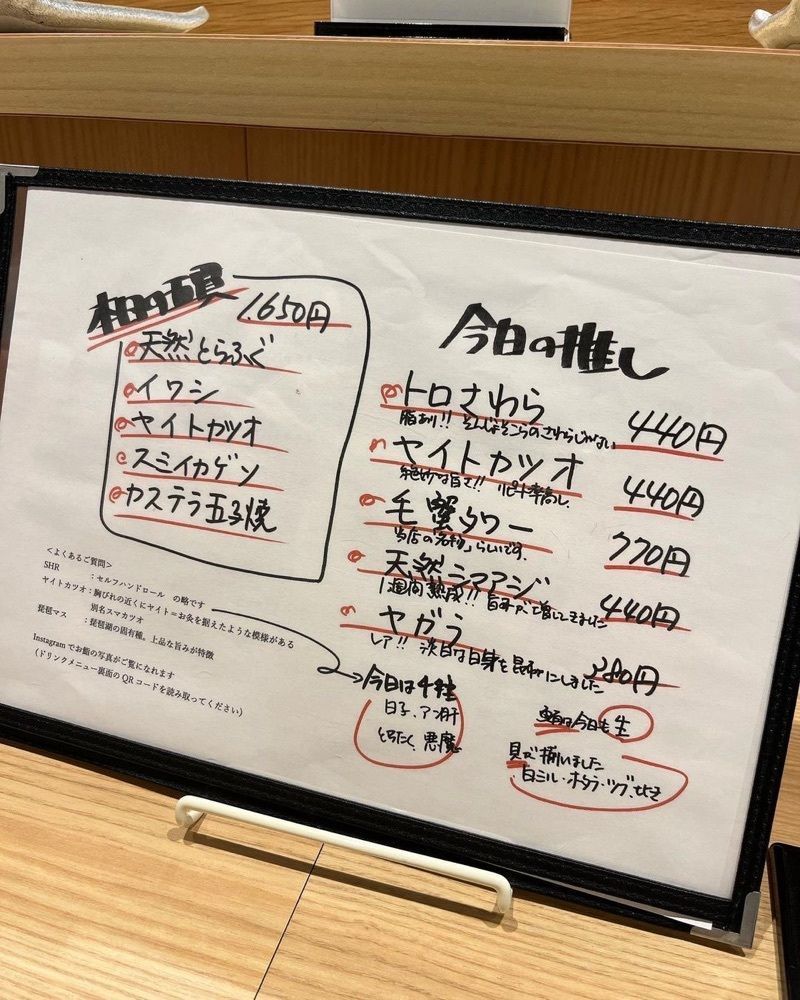 本日の五貫
1,650円
天然とらふぐ
イワシ
ヤイトカツオ
スミイカゲソ
カステラ玉子焼
<よくあるご質問>
SHR ：セルフハンドロール の略です
ヤイトカツオ：胸びれの近くにヤイト＝お灸を据えたような模様がある
別名スマカツオ
琵琶マス ：琵琶湖の固有種。上品な旨みが特徴
Instagramでお鮨の写真がご覧になれます
（ドリンクメニュー裏面のQRコードを読み取ってください）
今日の推し
トロさわら 440円
脂あり!! そんじょそこらのさわらじゃない
ヤイトカツオ 440円
絶妙な旨さ!! リピート率高し
毛蟹タワー 770円
「当店の名物」らしいです。
天然シマアジ 440円
1週間熟成!! 旨すが増してきました
ヤガラ 380円
レア!! 淡白な白身を昆布〆にしました
今日は4種
白子、アン肝
とろたく、悪魔
今日も生
貝が揃いました
白ミル・ホタテ・ツブ、